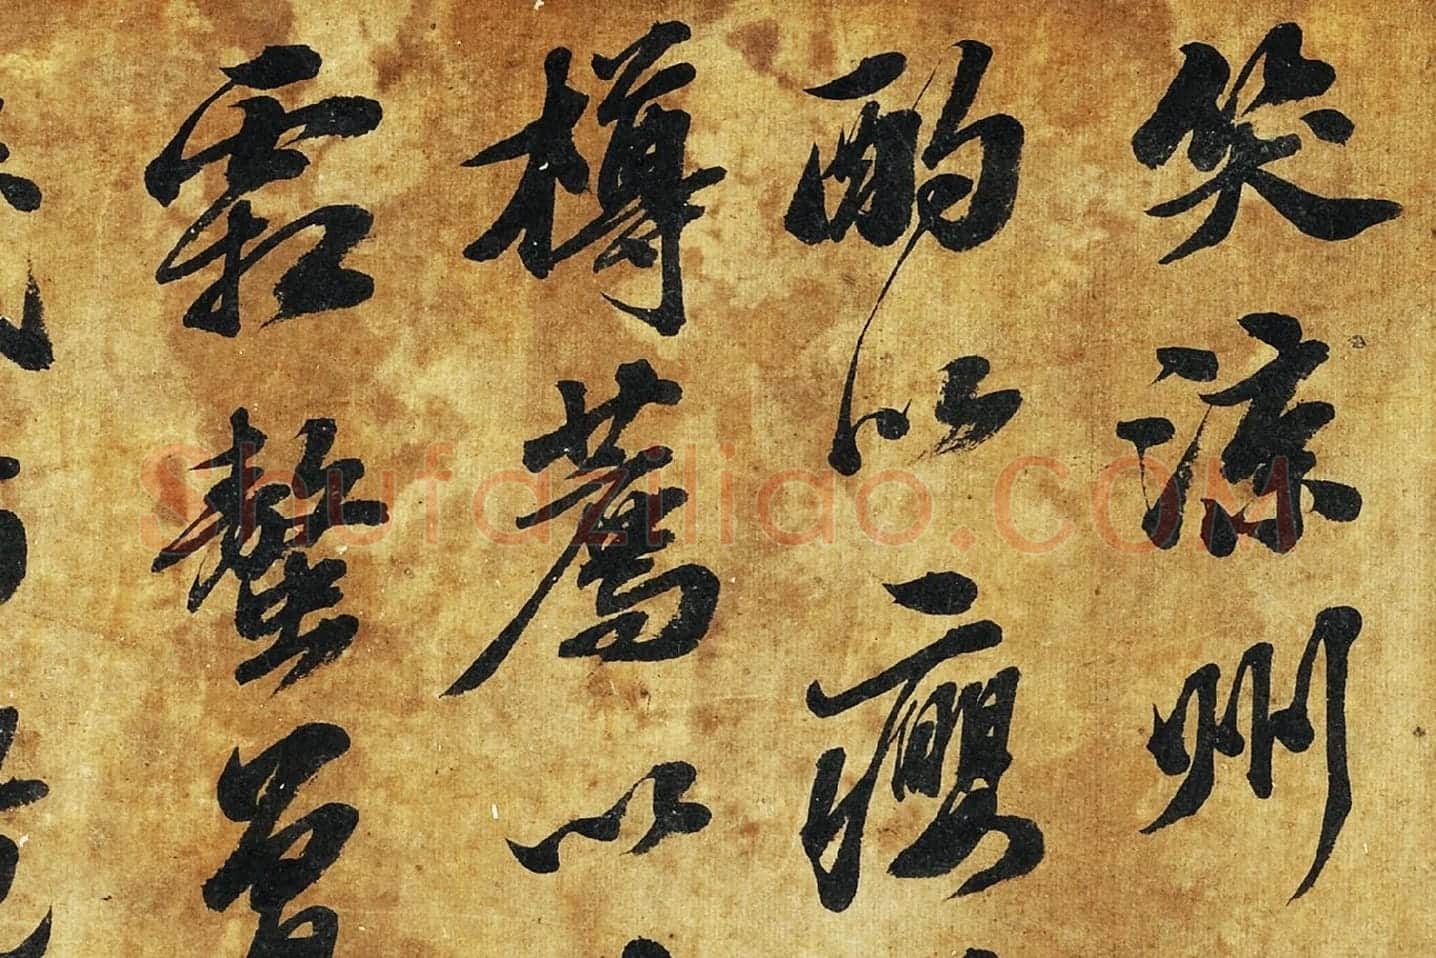 笑涼州
酌以癭
樽薦以
霜螯曾
Shufaziliao.COM